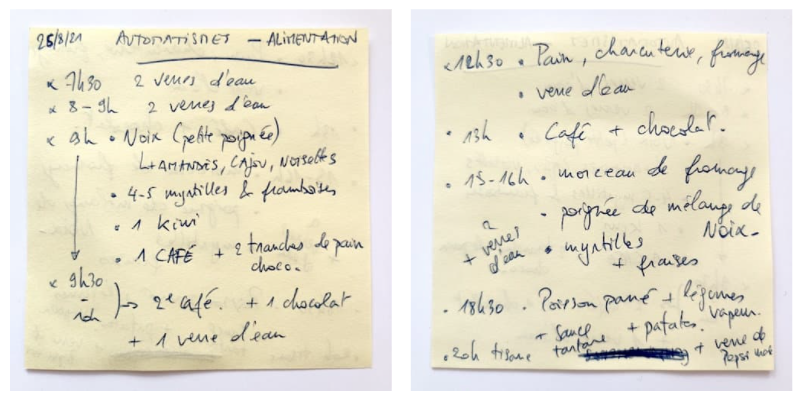 25/8/21 AUTOMATISMES – ALIMENTATION
x 7h30 2 verres d'eau
x 8-9h 2 verres d'eau
x 9h • Noix (petite poignée)
↳ AMANDES, CAJOU, NOISETTES
• 4-5 myrtilles & framboises
• 1 kiwi
• 1 CAFÉ + 2 tranches de pain
choco.
x 9h30
-10h ) → 2e café. + 1 chocolat
+ 1 verre d'eau
x 12h30 • Pain, charcuterie, fromage
• verre d'eau
• 13h • Café + chocolat.
• 15-16h • morceau de fromage
• poignée de mélange de
Noix.
+ 2 verres d'eau • myrtilles
+ fraises
• 18h30 • Poisson pané + légumes
vapeur.
+ sauce tartare + patates.
• 20h tisane + verre de
Pepsi max